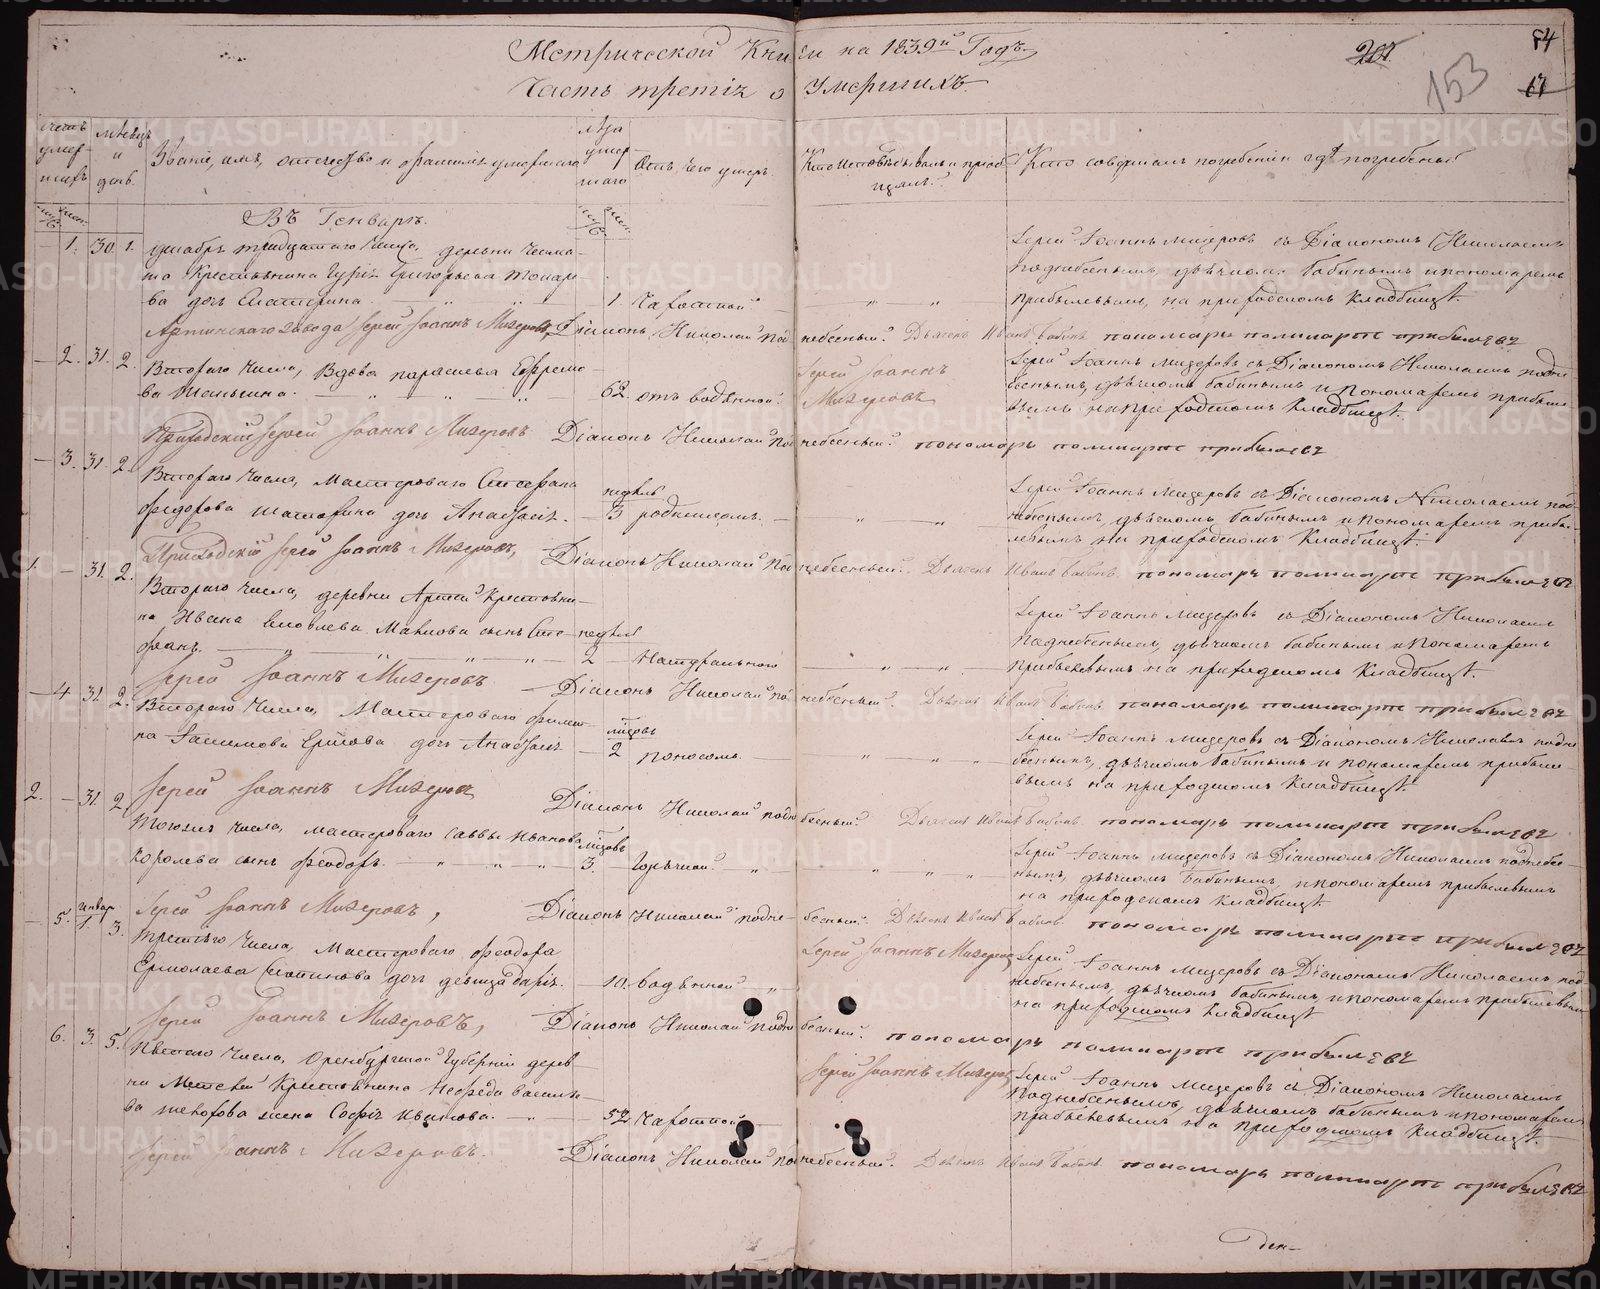 Метрической Книги на 1839й Годъ
Часть третія о Умершихъ.
207.
84
153
Счетъ умершихъ
Мѣсяцъ и день
Званіе, имя, отечество и фамилія умершаго
Лѣта умершаго
Отъ чего умеръ
Кто исповѣдывалъ и пріобщалъ
Кто совершалъ погребеніе и гдѣ погребены
Въ Генварѣ.
1. 30. 1.
декабря тридцатаго числа, деревни
Крестьянина Гурія Григорьева
дочь Екатерина
1. Чахоткой
Іерей Іоаннъ Мизеровъ съ Діакономъ Николаемъ
Поднебеснымъ, дьячкомъ Бабинымъ и пономаремъ
Прибылевымъ, на приходскомъ кладбищѣ.
Артинскаго завода Іерей Іоаннъ Мизеровъ, Діаконъ Николай Поднебесный. Дьячекъ Иванъ Бабинъ пономарь поликарпъ прибылевъ
2. 31. 2.
Втораго числа, Вдова Парасковья Ефремова
Шанькина.
62. отъ водяной.
Іерей Іоаннъ
Мизеровъ
Іерей Іоаннъ Мизеровъ съ Діакономъ Николаемъ Поднебеснымъ,
дьячкомъ Бабинымъ и Пономаремъ Прибылевымъ
на приходскомъ кладбищѣ.
Приходскій Іерей Іоаннъ Мизеровъ Діаконъ Николай Поднебесный. пономарь поликарпъ прибылевъ
3. 31. 2.
Втораго числа, Мастероваго Стефана
Федорова Шатохина дочь Анастасія.
недѣль
3 родимцомъ.
Іерей Іоаннъ Мизеровъ съ Діакономъ Николаемъ Поднебеснымъ,
дьячкомъ Бабинымъ и пономаремъ Прибылевымъ
на приходскомъ кладбищѣ.
Приходскій Іерей Іоаннъ Мизеровъ, Діаконъ Николай Поднебесный. Дьячекъ Иванъ Бабинъ пономарь поликарпъ прибылевъ
1. 31. 2.
Втораго числа, деревни Артей Крестьянина
Ивана Яковлева Мавлова сынъ Стефанъ.
недѣль
2
Іерей Іоаннъ Мизеровъ съ Діакономъ Николаемъ
Поднебеснымъ, дьячкомъ Бабинымъ и Пономаремъ
Прибылевымъ на приходскомъ кладбищѣ.
Іерей Іоаннъ Мизеровъ Діаконъ Николай Поднебесный. Дьячекъ Иванъ Бабинъ пономарь поликарпъ прибылевъ
4. 31. 2.
Втораго числа, Мастероваго
Ершова дочь Анастасія
2 поносомъ.
Іерей Іоаннъ Мизеровъ съ Діакономъ Николаемъ Поднебеснымъ,
дьячкомъ Бабинымъ и пономаремъ Прибылевымъ
на приходскомъ кладбищѣ.
Іерей Іоаннъ Мизеровъ Діаконъ Николай Поднебесный. Дьячекъ Иванъ Бабинъ пономарь поликарпъ прибылевъ
2. 31. 2
Тогожъ числа, мастероваго Саввы Иванова
Королева сынъ Феодоръ.
3. Горячкой.
Іерей Іоаннъ Мизеровъ съ Діакономъ Николаемъ Поднебеснымъ,
дьячкомъ Бабинымъ и пономаремъ Прибылевымъ
на приходскомъ кладбищѣ
Іерей Іоаннъ Мизеровъ, Діаконъ Николай Поднебесный. Дьячекъ Иванъ Бабинъ. пономарь поликарпъ прибылевъ
5. Январ 1. 3.
Третьяго числа, Мастероваго Феодора
Ермолаева дочь девица Дарія.
10. водяной
Іерей Іоаннъ Мизеровъ
Іерей Іоаннъ Мизеровъ съ Діакономъ Николаемъ Поднебеснымъ,
дьячкомъ Бабинымъ и пономаремъ Прибылевымъ
на приходскомъ кладбищѣ
Іерей Іоаннъ Мизеровъ, Діаконъ Николай Поднебесный. пономарь поликарпъ прибылевъ
6. 3. 5.
Пятаго числа, Оренбургской Губерніи деревни
Крестьянина
жена Софія Иванова.
52 Чахоткой
Іерей Іоаннъ Мизеровъ
Іерей Іоаннъ Мизеровъ съ Діакономъ Николаемъ
Поднебеснымъ, дьячкомъ Бабинымъ и пономаремъ
Прибылевымъ на приходскомъ кладбищѣ
Іерей Іоаннъ Мизеровъ. Діаконъ Николай Поднебесный. Дьячекъ Иванъ Бабинъ. пономарь поликарпъ прибылевъ
METRIKI.GASO-URAL.RU